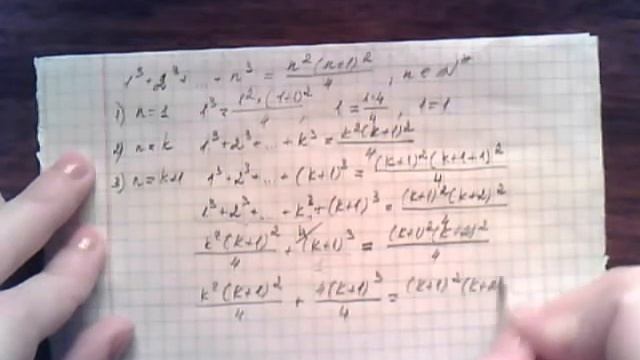 1³+2³+...+n³ = n²(n+1)²/4, n ∈ N*
1) n=1 1³ = 1²·(1+1)²/4, 1 = 1·4/4, 1=1
2) n=k 1³+2³+...+k³ = k²(k+1)²/4
3) n=k+1 1³+2³+...+(k+1)³ = (k+1)²(k+1+1)²/4
1³+2³+...+k³+(k+1)³ = (k+1)²(k+2)²/4
k²(k+1)²/4 + (k+1)³ = (k+1)²(k+2)²/4
k²(k+1)²/4 + 4(k+1)³/4 = (k+1)²(k+2